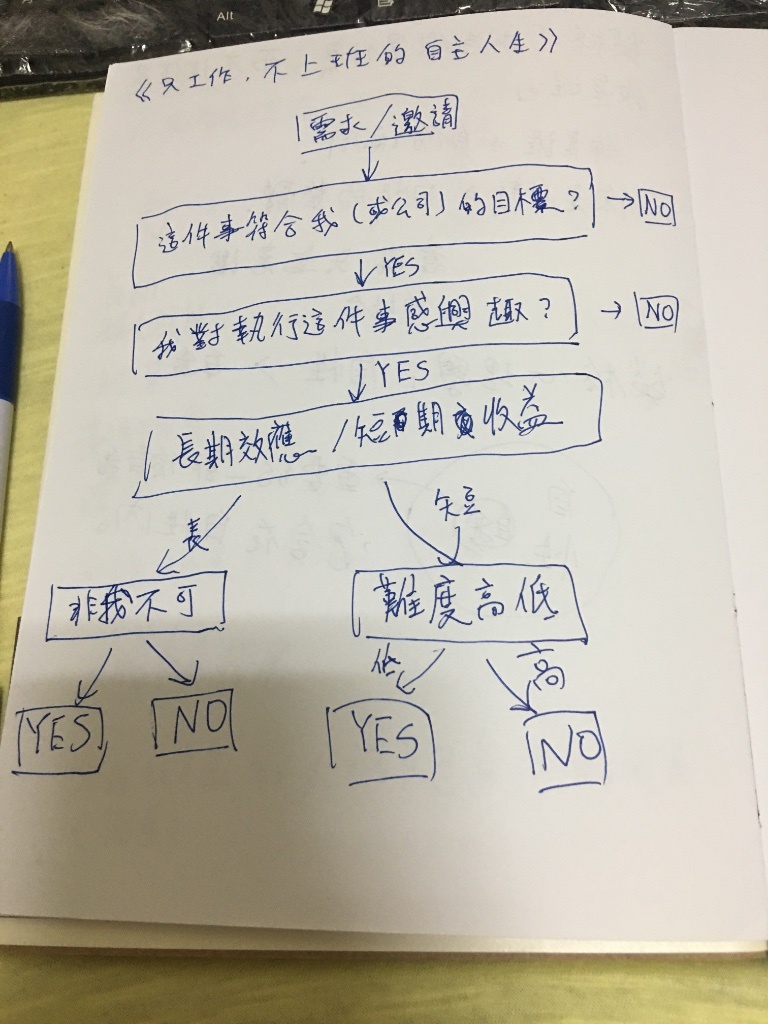 Alt
《只工作，不上班的自主人生》
需求/邀請
這件事符合我（或公司）的目標？ → NO
YES
我對執行這件事感興趣？ → NO
YES
長期效應/短期收益
長 短
非我不可 難度高低
低 高
YES NO YES NO